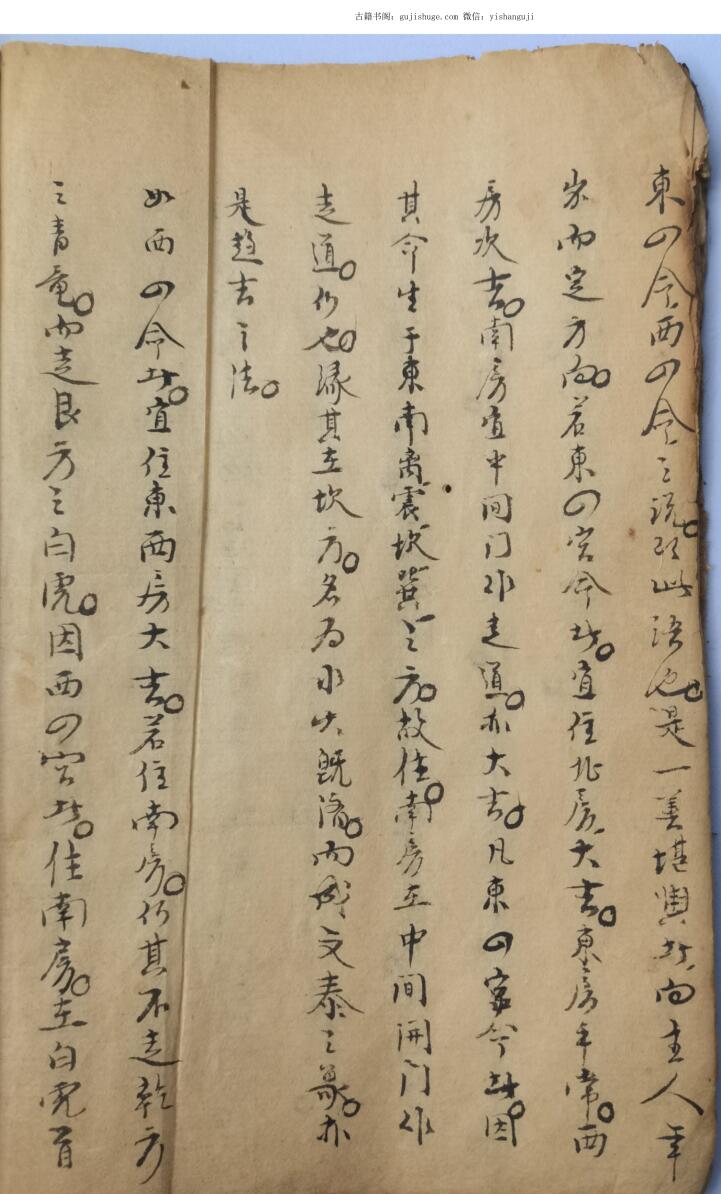 古籍书阁：gujishuge.com 微信：yishanguji
東四命西四命之説即此語也是一善堪輿者向主人年
岁而定方向。若東四宮命者。宜住北房大吉。東房平常。西
房次吉。南房宜中间门作走道。亦大吉。凡東四家命者。因
其命生于東南离震坎巽之方。故住南房在中间開门作
走道。何也。缘其在坎方。名为水火既濟。而成交泰之象。亦
是趋吉之法。
如西四命者。宜住東西房大吉。若住南房。何其不走乾方
之青竜。而走艮方之白虎。因西四宮者。住南房。在白虎首